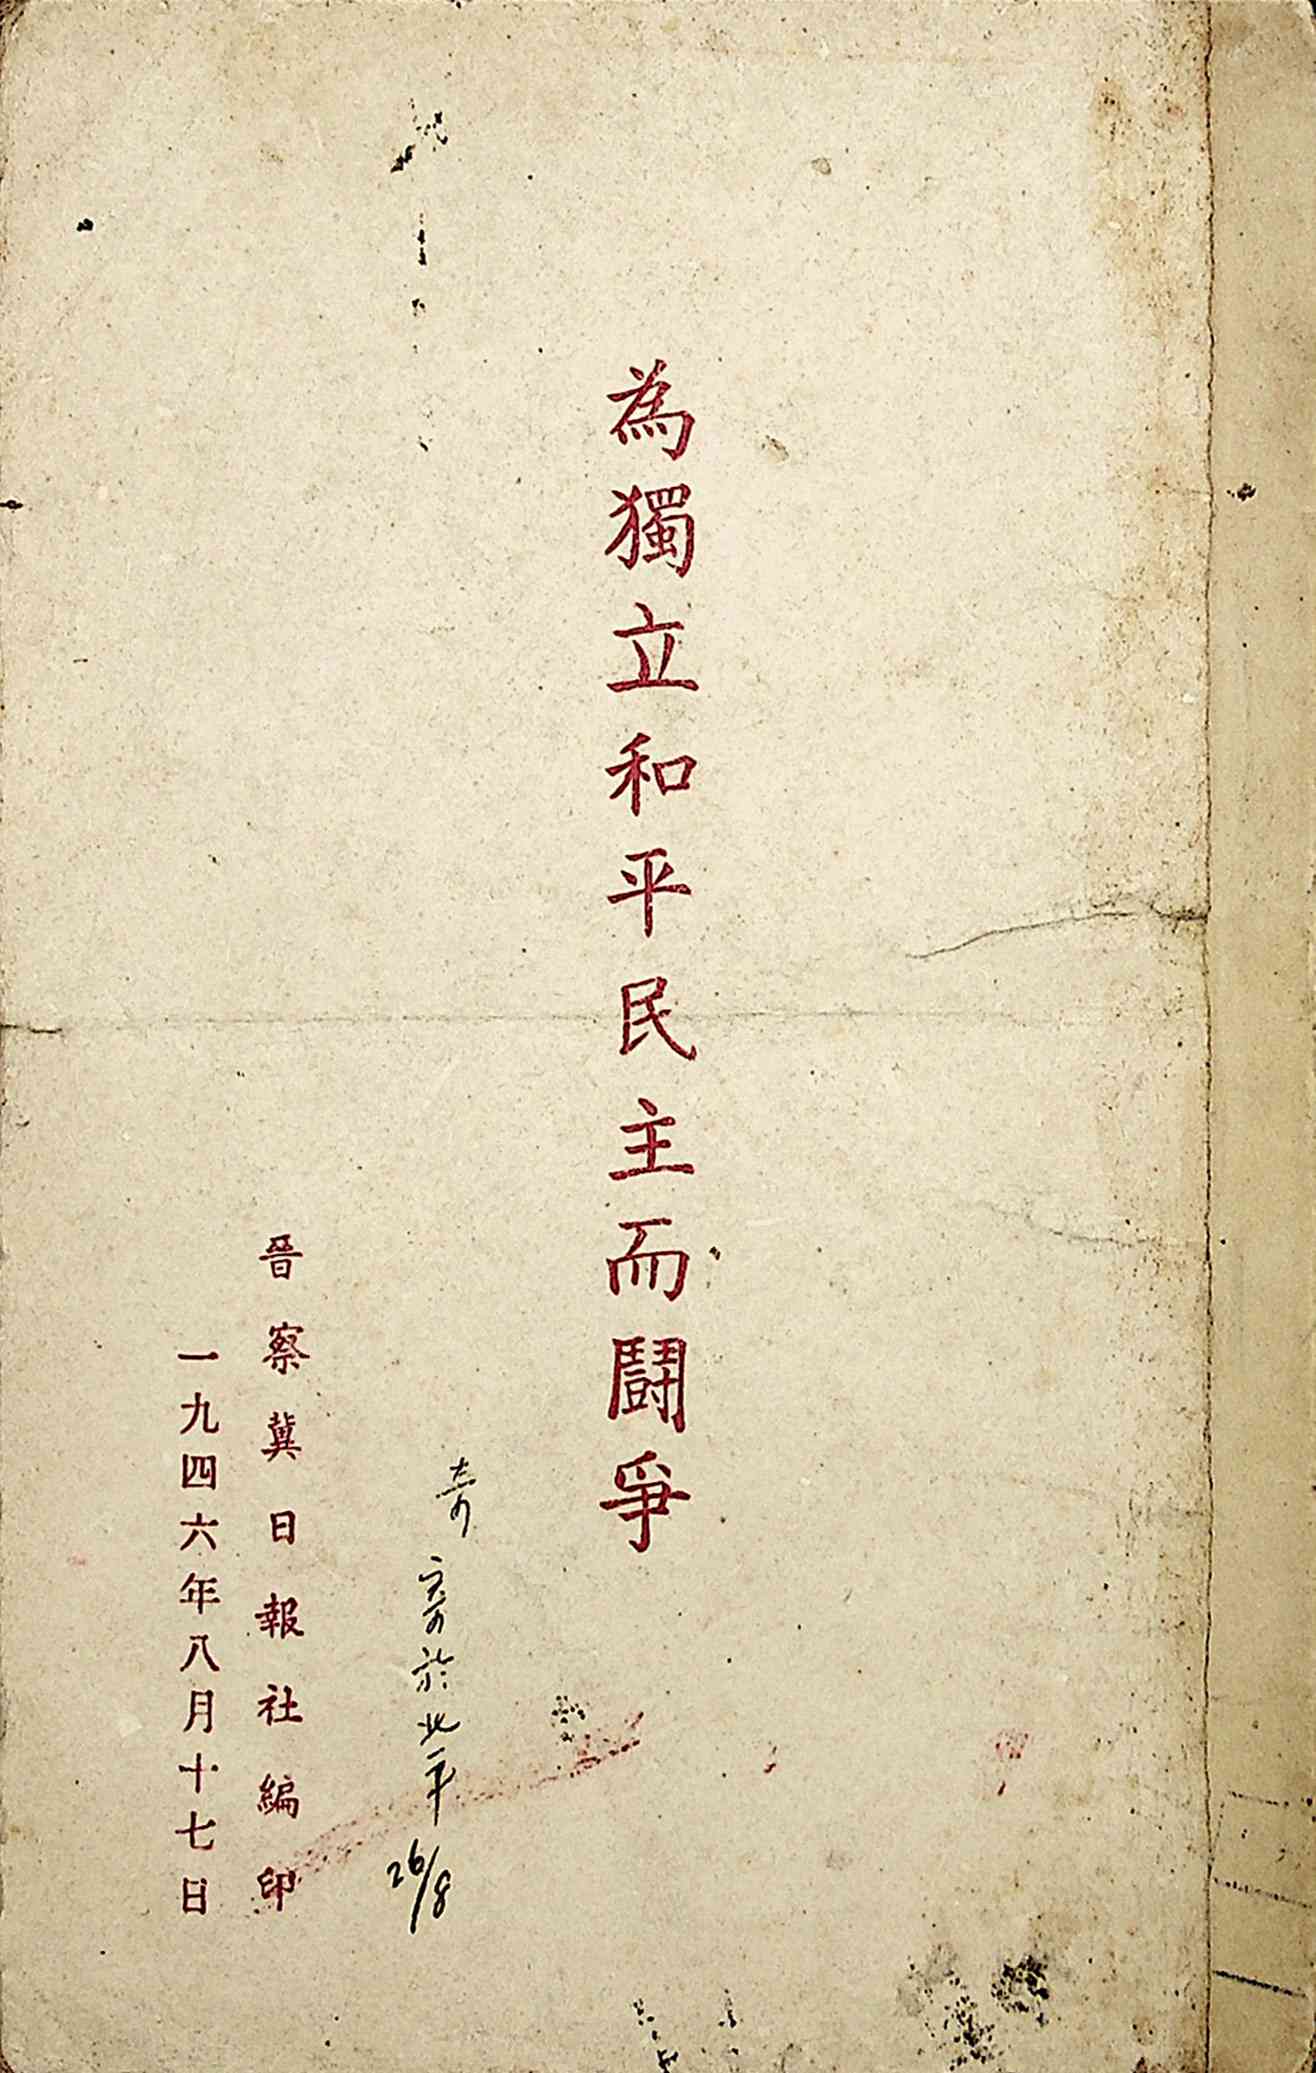 為獨立和平民主而鬭爭
奇
寄於北平
26/8
晉察冀日報社編印
一九四六年八月十七日